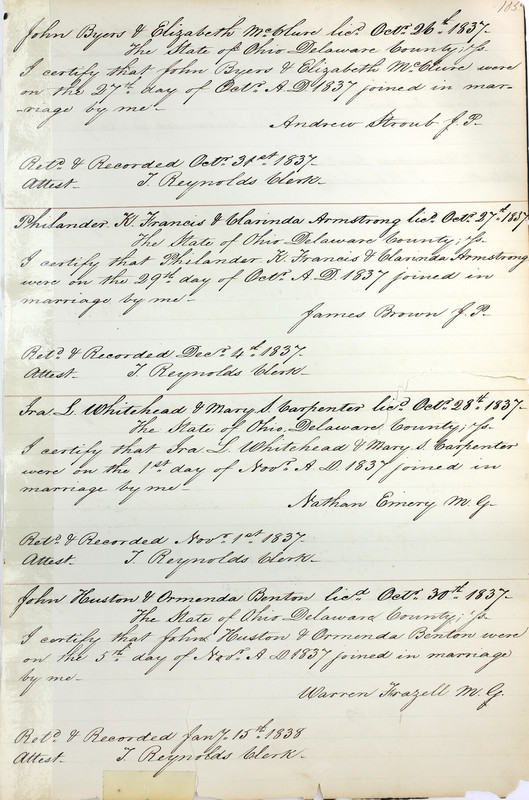 105
John Byers & Elizabeth McClure licd. Octr. 26th. 1837-
The State of Ohio Delaware County, ss.
I certify that John Byers & Elizabeth McClure were
on the 27th. day of Octr. A.D 1837 joined in mar-
-riage by me-
Andrew Stroub J.P.
Retd. & Recorded Octr. 31st. 1837.
Attest- T. Reynolds Clerk-
Philander K. Francis & Clarinda Armstrong licd. Octr. 27th. 1837
The State of Ohio Delaware County; ss.
I certify that Philander K. Francis & Clarinda Armstrong
were on the 29th. day of Octr. A.D 1837 joined in
marriage by me-
James Brown J.P.
Retd. & Recorded Decr. 4th. 1837.
Attest- T. Reynolds Clerk
Ira L. Whitehead & Mary S. Carpenter licd. Octr. 28th. 1837-
The State of Ohio, Delaware County; ss.
I certify that Ira L Whitehead & Mary S. Carpenter
were on the 1st. day of Novr. A.D. 1837 joined in
marriage by me-
Nathan Emery M.G.
Retd. & Recorded Novr. 1st. 1837.
Attest- T. Reynolds Clerk-
John Huston & Ormenda Benton licd. Octr. 30th. 1837-
The State of Ohio Delaware County; ss.
I certify that John Huston & Ormenda Benton were
on the 5th. day of Novr. A D 1837 joined in marriage
by me-
Warren Frazell M.G.
Retd. & Recorded Jany. 15th. 1838
Attest- T. Reynolds Clerk-